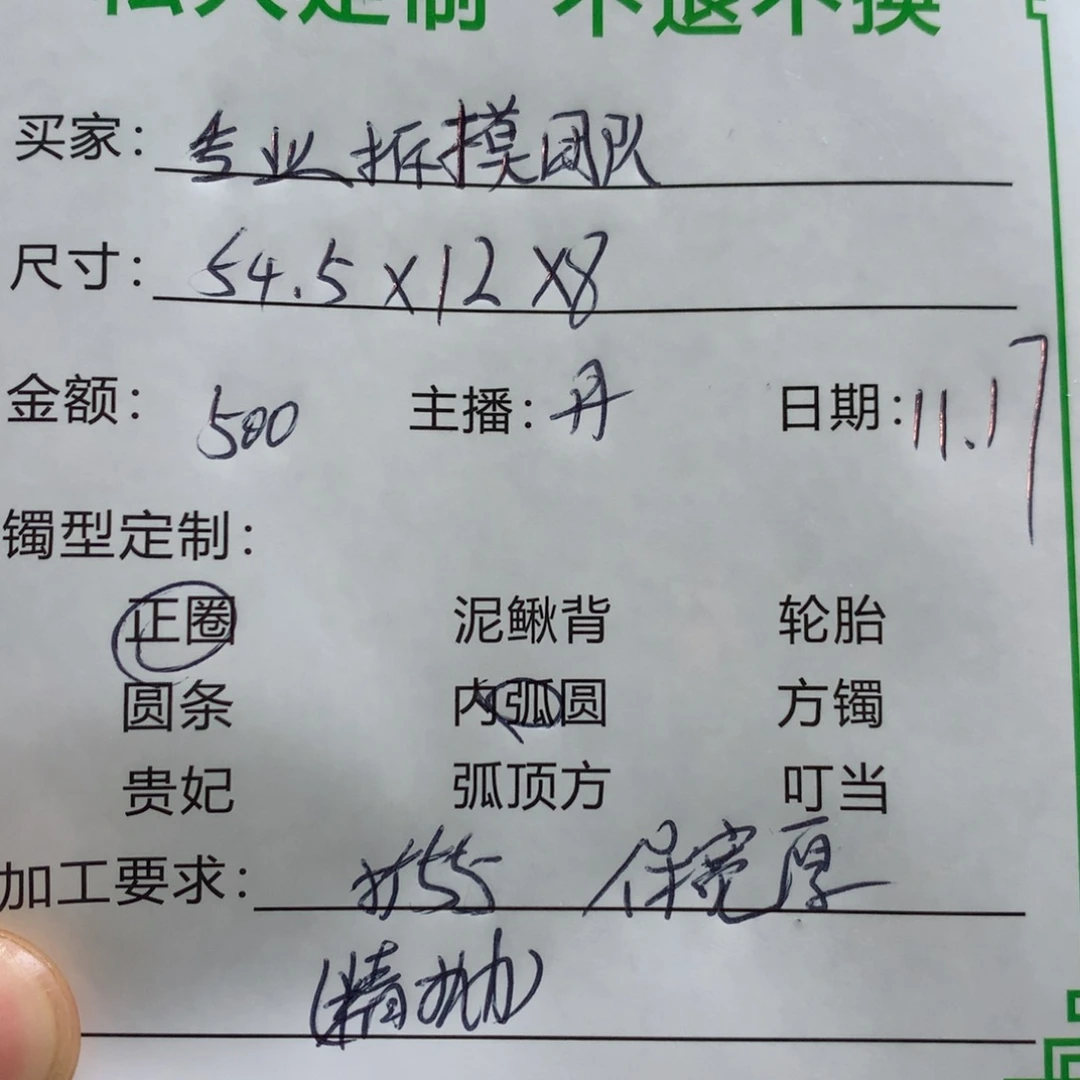 私人定制 不退不换
买家：专业拆摸团队
尺寸：54.5×12×8
金额：500 主播：丹 日期：11.17
镯型定制：
正圈 泥鳅背 轮胎
圆条 内弧圆 方镯
贵妃 弧顶方 叮当
加工要求：扩55 保宽厚
(精抛)